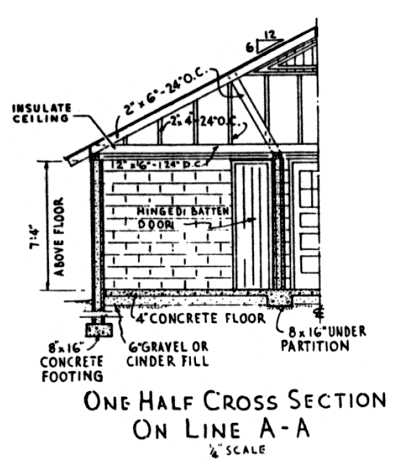 12
6
2" x 6"-24" O.C.
INSULATE
CEILING
2"x 4"-24" O.C.
2" x 6"-24" O.C.
7'-4"
ABOVE FLOOR
HINGED BATTEN
DOOR
4" CONCRETE FLOOR
8"x16"
CONCRETE
FOOTING
6" GRAVEL OR
CINDER FILL
8 x 16" UNDER
PARTITION
℄
ONE HALF CROSS SECTION
ON LINE A-A
¼" SCALE